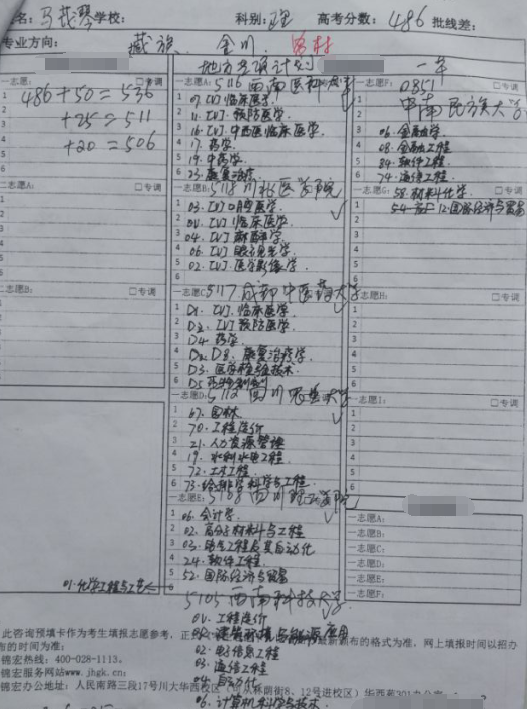 名: 马茂琴 学校: 科别: 理 高考分数: 486 批线差:
专业方向: 藏族. 金川. 农村
地方专项计划 一本
一志愿: □专调
1 486+50=536
+25=511
+20=506
一志愿A: 5116 西南医科大学
07. [V] 临床医学
11. [V] 预防医学
16. [V] 中西医临床医学
17. 药学
19. 中药学
23. 康复治疗
一志愿B: 5118 川北医学院
03. [V] 口腔医学
01. [V] 临床医学
04. [V] 麻醉学
06. [V] 眼视光学
02. [V] 医学影像学
一志愿C: 5117 成都中医药大学
D1. [V]. 临床医学
D2. [V] 预防医学
D4. 药学
D8. 康复治疗学
D3. 医学检验技术
D5 药物制剂
一志愿D: 5112 四川农业大学
67. 园林
70. 工程造价
21. 人力资源管理
19. 水利水电工程
72. 土木工程
73. 给排水科学与工程
一志愿E: 四川轻化工
06. 会计学
02. 高分子材料与工程
03. 电气工程及其自动化
24. 软件工程
52. 国际经济与贸易
01. 化学工程与工艺
5105 西南科技大学
01. 工程造价
建筑环境与能源应用
02. 电子信息工程
03. 通信工程
04. 自动化
06. 计算机科学与技术
一志愿F: 0851 □专调
中南民族大学
06. 金融学
08. 金融工程
84. 软件工程
74. 通信工程
一志愿G: 58. 材料化学 □专调
12. 国际经济与贸易
一志愿H: □专调
一志愿I: □专调
一志愿A:
一志愿B:
一志愿C:
一志愿D:
一志愿E:
一志愿F:
二志愿A: □专调
二志愿B: □专调
此咨询预填卡作为考生填报志愿参考,
最新颁布的格式为准, 网上填报时间以招办
布的时间为准。
锦宏热线: 400-028-1113。
锦宏服务网站www.jhgk.cn:
锦宏办公地址: 人民南路三段17号川大华西校区(可从林荫街8、12号进校区)华西苑301办公室